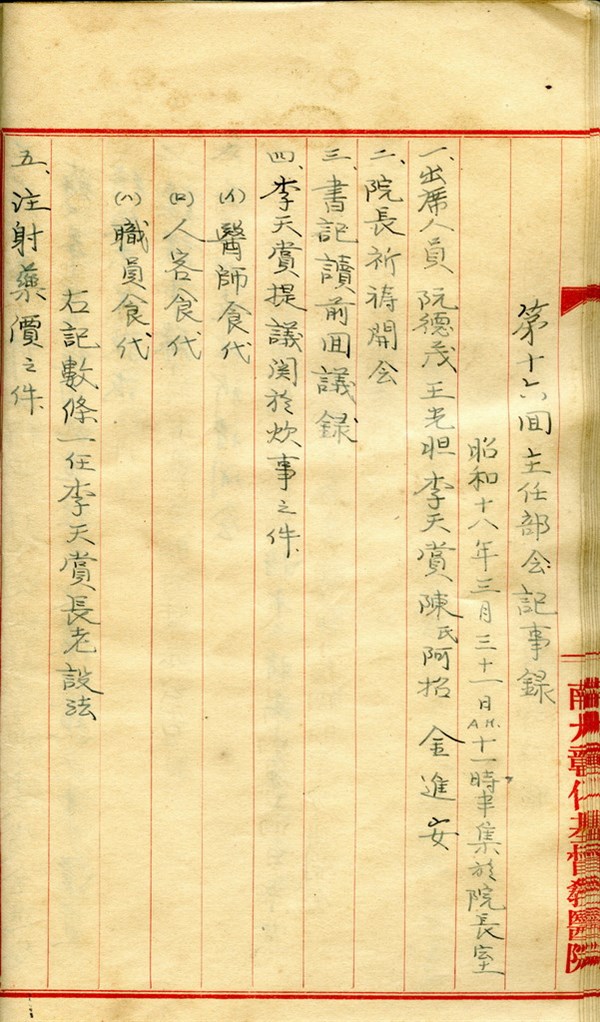 第十六回主任部会記事録
昭和十八年三月三十一日A.M.十一時半集於院長室
一、出席人員 阮德茂 王光胆 李天賞 陳氏阿招 金進安
二、院長祈祷開会
三、書記讀前回議録
四、李天賞提議関於炊事之件
(イ)醫師食代
(ロ)人客食代
(ハ)職員食代
右記數條一任李天賞長老設法
五、注射藥價之件
基督教醫院